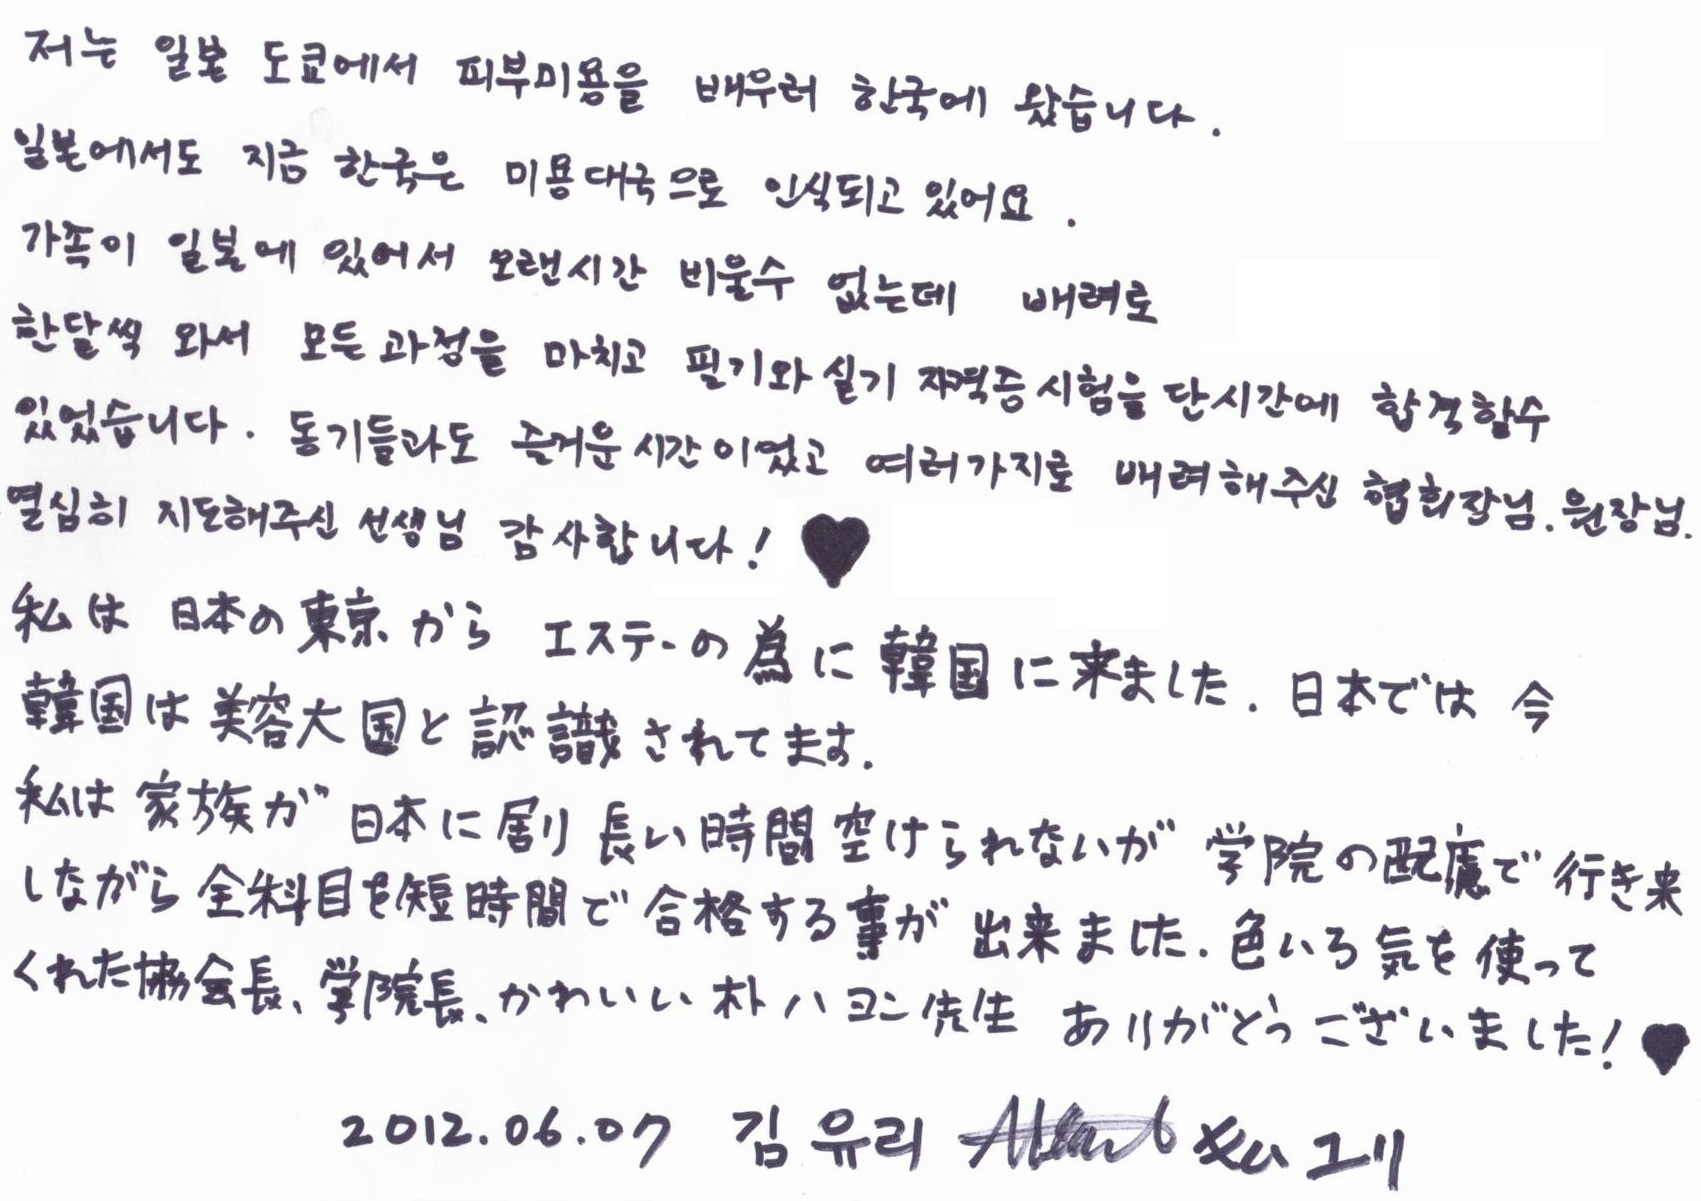 저는 일본 도쿄에서 피부미용을 배우러 한국에 왔습니다.
일본에서도 지금 한국은 미용대국으로 인식되고 있어요.
가족이 일본에 있어서 오랜시간 비울수 없는데 배려로
한달씩 와서 모든 과정을 마치고 필기와 실기 자격증시험을 단시간에 합격할수
있었습니다. 동기들과도 즐거운 시간이었고 여러가지로 배려해주신 협회장님. 원장님.
열심히 지도해주신 선생님 감사합니다! ♥
私は 日本の東京から エステーの為に韓国に来ました. 日本では 今
韓国は美容大国と認識されてます.
私は家族が日本に居り長い時間空けられないが 学院の配慮で行き来
しながら全科目を短時間で合格する事が出来ました. 色いろ気を使って
くれた協会長、学院長、かわいい 朴ハヨン先生 ありがとうございました! ♥
2012.06.07 김유리 ユリ